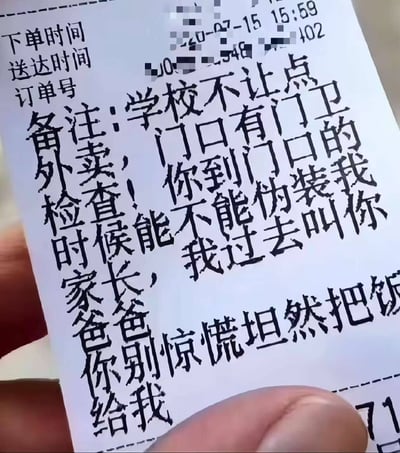 下单时间
20-07-15 15:59
送达时间
订单号
402
备注:学校不让点
外卖,门口有门卫
检查!你到门口的
时候能不能伪装我
家长,我过去叫你
爸爸
你别惊慌坦然把饭
给我
71